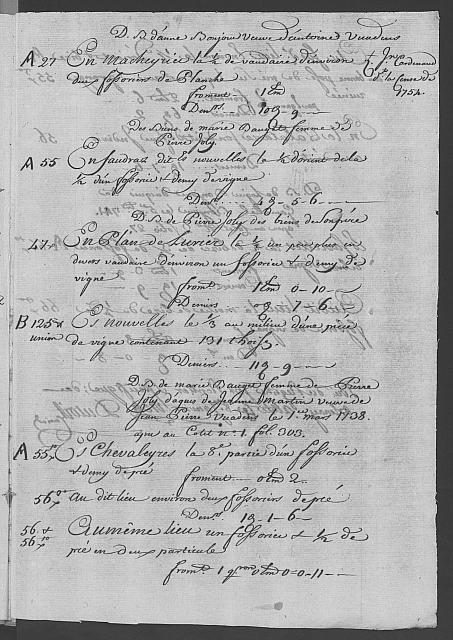 D. B. d'anne Bonjour veuve d'antoine Vuadens
A. 27 En Macheyrie la ½ de vaudaire d'environ
deux fossoriers de Planche
froment 1
Den.rs 10 3 - 9
Des Biens de marie Daugh femme de
Pierre Joly.
A 55 En faudraz dit és nouvelles la ½ d'orient de la
½ d'un fossorier & demy de vigne
Den.rs 4 3 - 5 - 6
D. B. de Pierre Joly des biens de son père
47 En Plan de Luvrier la ½ un peu plus en
devers vaudaire d'environ un fossorier & demy de
vigne
from.t 1 0 - 10
Deniers 0 3 7 - 6
B 125 Es nouvelles le ⅓ au milieu d'une pièce
union de vigne contenant 131
Deniers 11 3 - 9
D. B. de marie femme de Pierre
Joly d'aquis de Jeanne Martin veuve de
Jean Pierre Vuadens le 1er mars 1738.
apns au Cotet n.° 1. fol. 303.
A 55 Es Chevaleyres la 3.e partie d'un fossorier
& demy de pré
froment 0 2
56 au dit lieu environ deux fossoriers de pré
Den.rs 1 3 - 1 - 6
56. & Au même lieu un fossorier & ½ de
56 pré en deux particules
from.t 1 0 0 - 0 - 11